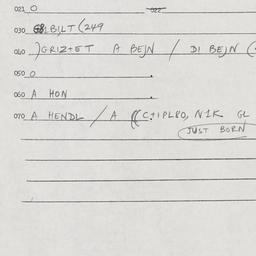 021 O 022
030 BILT (249
040 )GRIZ+ET A BEJN / DI BEJN (
050 O
060 A HON
070 A HENDL / A ((C+IPLRO, N1K GL
JUST BORN